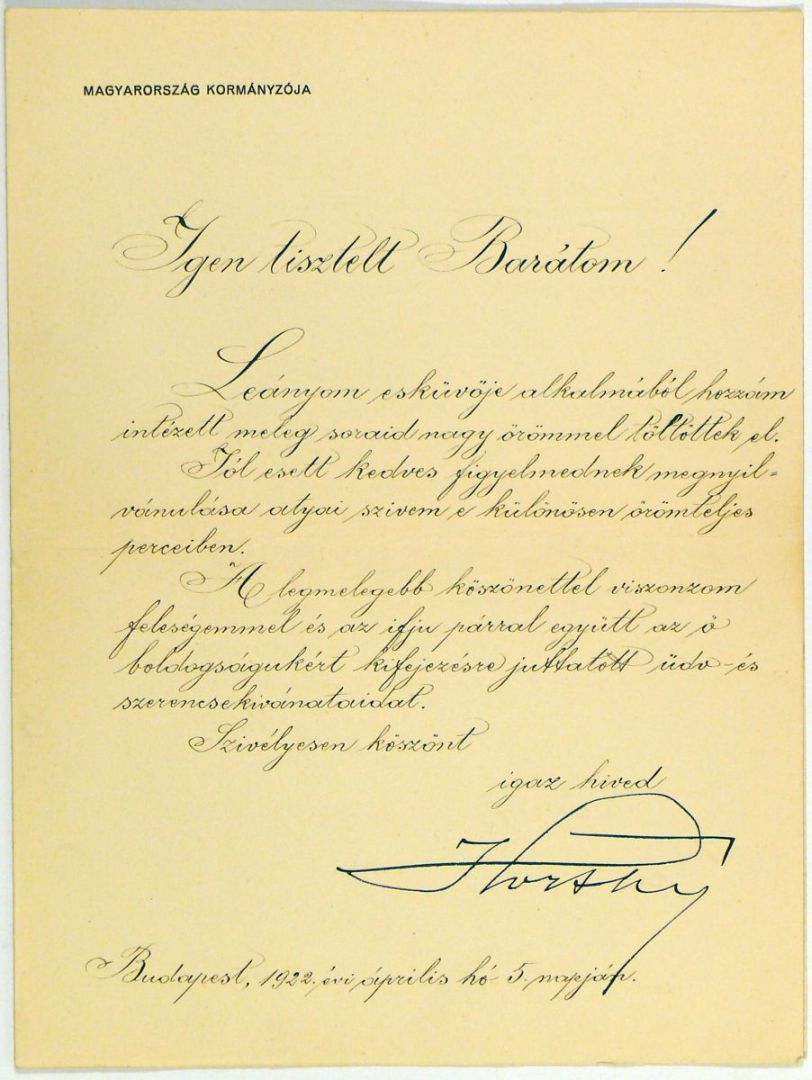 MAGYARORSZÁG KORMÁNYZÓJA
Igen tisztelt Barátom !
Leányom esküvője alkalmából hozzám
intézett meleg soraid nagy örömmel töltöttek el.
Jól esett kedves figyelmednek megnyil-
vánulása atyai szivem e különösen örömteljes
perceiben.
A legmelegebb köszönettel viszonzom
feleségemmel és az ifju párral együtt az ő
boldogságukért kifejezésre juttatott üdv-és
szerencsekivánataidat.
Szivélyesen köszönt
igaz hived
Horthy
Budapest, 1922. évi április hó 5. napján.